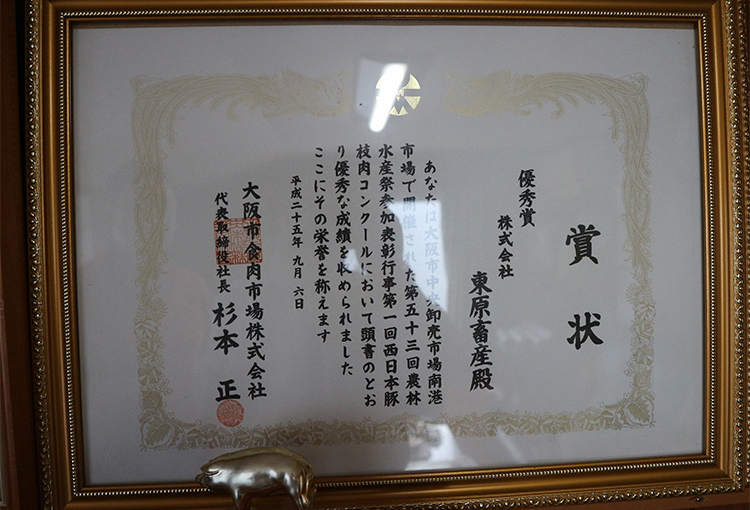 賞状
優秀賞
株式会社
東原畜産殿
あなたは大阪市中央卸売市場南港
市場で開催された第五十三回農林
水産祭参加表彰行事第一回西日本豚
枝肉コンクールにおいて頭書のとお
り優秀な成績を収められました
ここにその栄誉を称えます
平成二十五年九月六日
大阪市食肉市場株式会社
代表取締役社長 杉本正